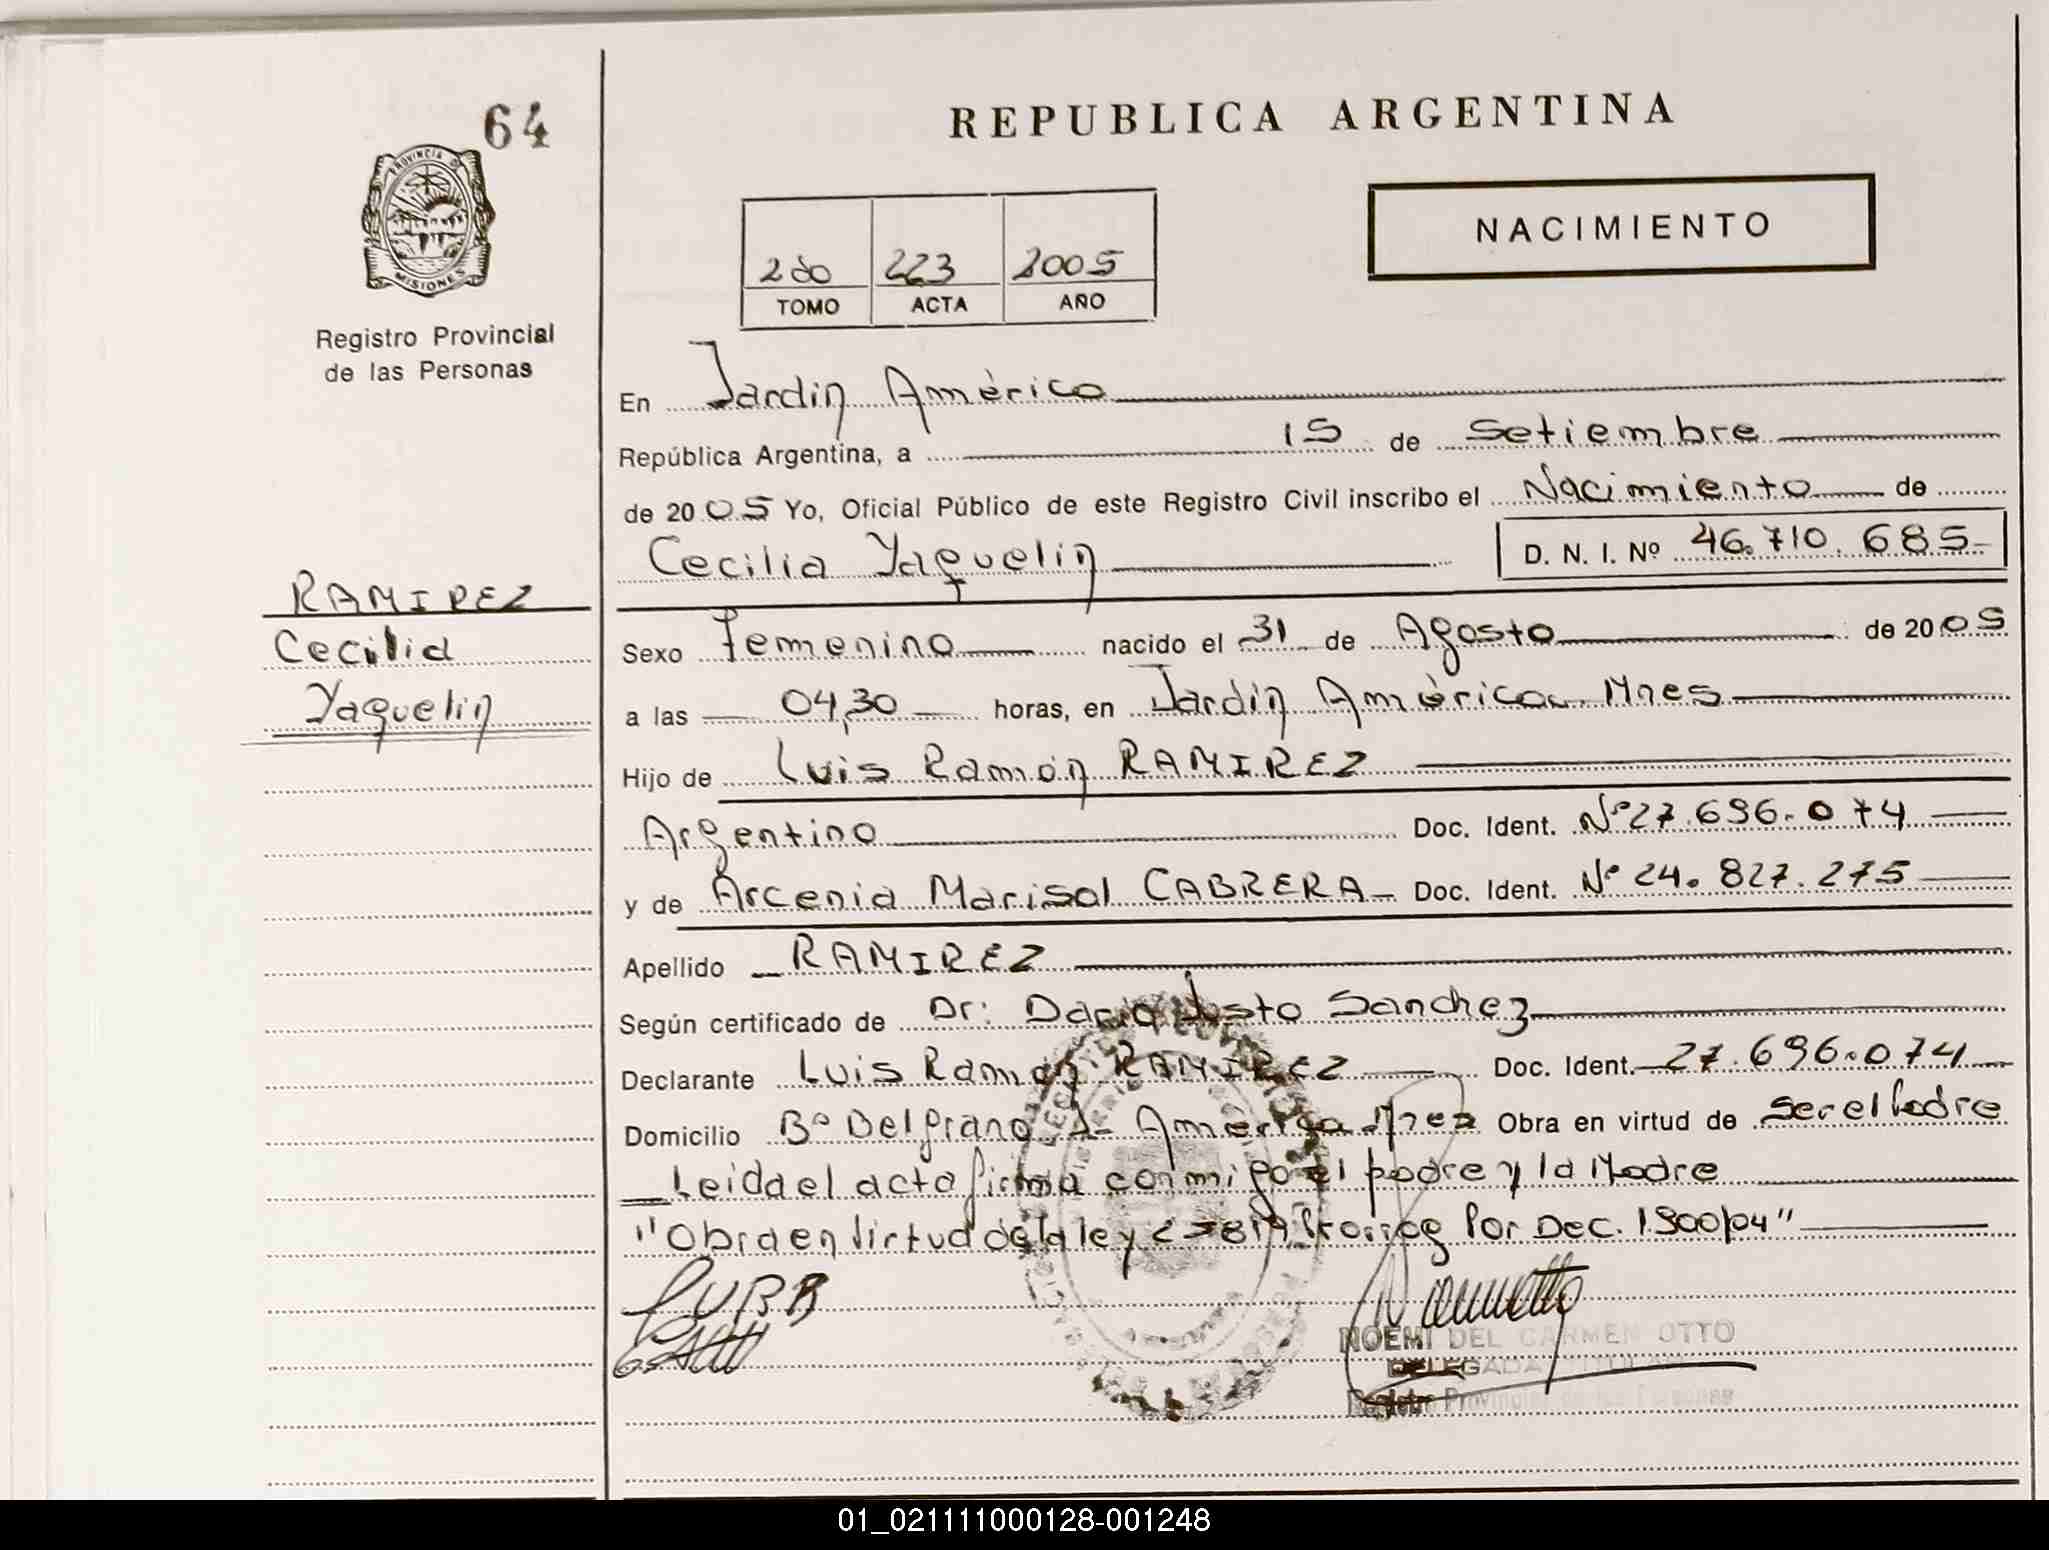 64
REPUBLICA ARGENTINA
PROVINCIA DE
MISIONES
NACIMIENTO
2do 223 2005
TOMO ACTA AÑO
Registro Provincial
de las Personas
En Jardin América
República Argentina, a 15 de Setiembre
de 2005 Yo, Oficial Público de este Registro Civil inscribo el Nacimiento de
Cecilia Yaquelin D. N. I. Nº 46.710.685
RAMIREZ
Cecilia
Yaquelin
Sexo Femenino nacido el 31 de Agosto de 2005
a las 04,30 horas, en Jardin América Mnes
Hijo de Luis Ramón RAMIREZ
Argentino Doc. Ident. Nº 27.696.074
y de Arcenia Marisol CABRERA Doc. Ident. Nº 24.827.275
Apellido RAMIREZ
Según certificado de Dr: Dario Justo Sanchez
Declarante Luis Ramón RAMIREZ Doc. Ident. 27.696.074
Domicilio Bº Belgrano J- América Mnes Obra en virtud de ser el Padre
Leida el acta firma conmigo el padre y la Madre
"Obra en Virtud de la ley Por Dec. 1.900/04"
NOEMI DEL CARMEN OTTO
DELEGADA TITULAR
Registro Provincial de las Personas
01_021111000128-001248